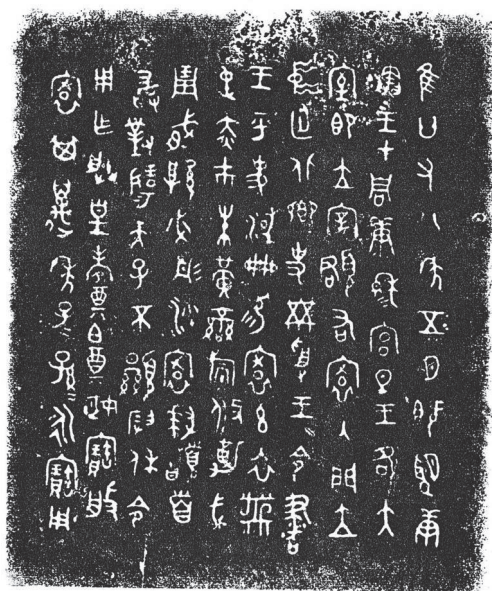 隹廿又八年五月既望庚
寅王才周康穆宮旦王各大
室即立宰頵右寰入門立
中廷北鄉史黹受王令書
王乎史淢易寰玄衣黹
屯赤巿朱黃䜌旂攸勒戈
琱㦰厚必彤沙寰拜𩒨首
敢對揚天子不顯叚休令
用乍朕皇考奠白奠姬寶般
寰其萬年子=孫=永寶用